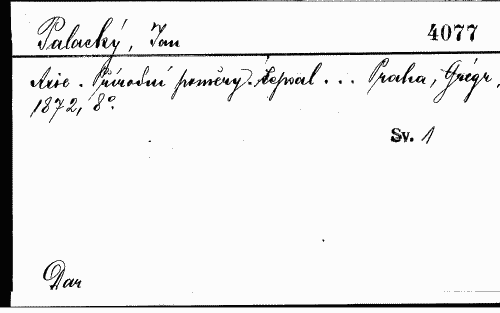 Palacký, Jan 4077
Asie. Přírodní poměry. Sepsal ... Praha, Grégr,
1872, 8°.
Sv. 1
Dar